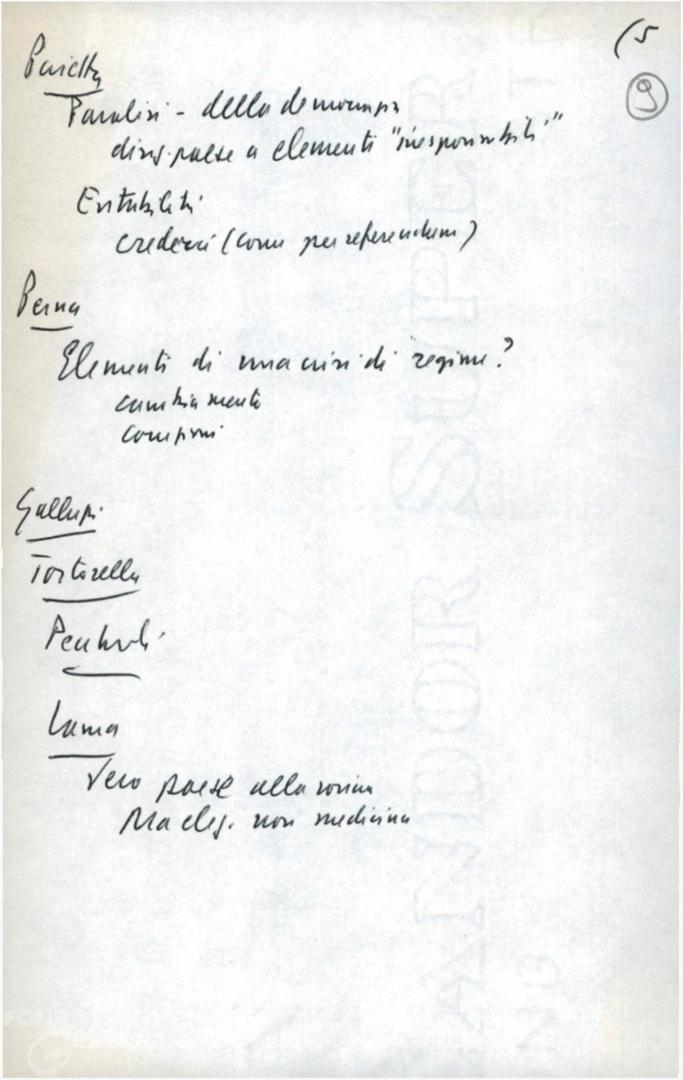 (5
9
Pajetta
Paralisi - della democrazia
dirig. paese a elementi "irresponsabili"
Evitabilità
crederci (come per referendum)
Perna
Elementi di una crisi di regime?
cambiamenti
compromi
Galluzzi
Tortorella
Pecchioli
Lama
Vero paese alla rovina
Ma eleg. non medicina
FON
AMDOR SUPER